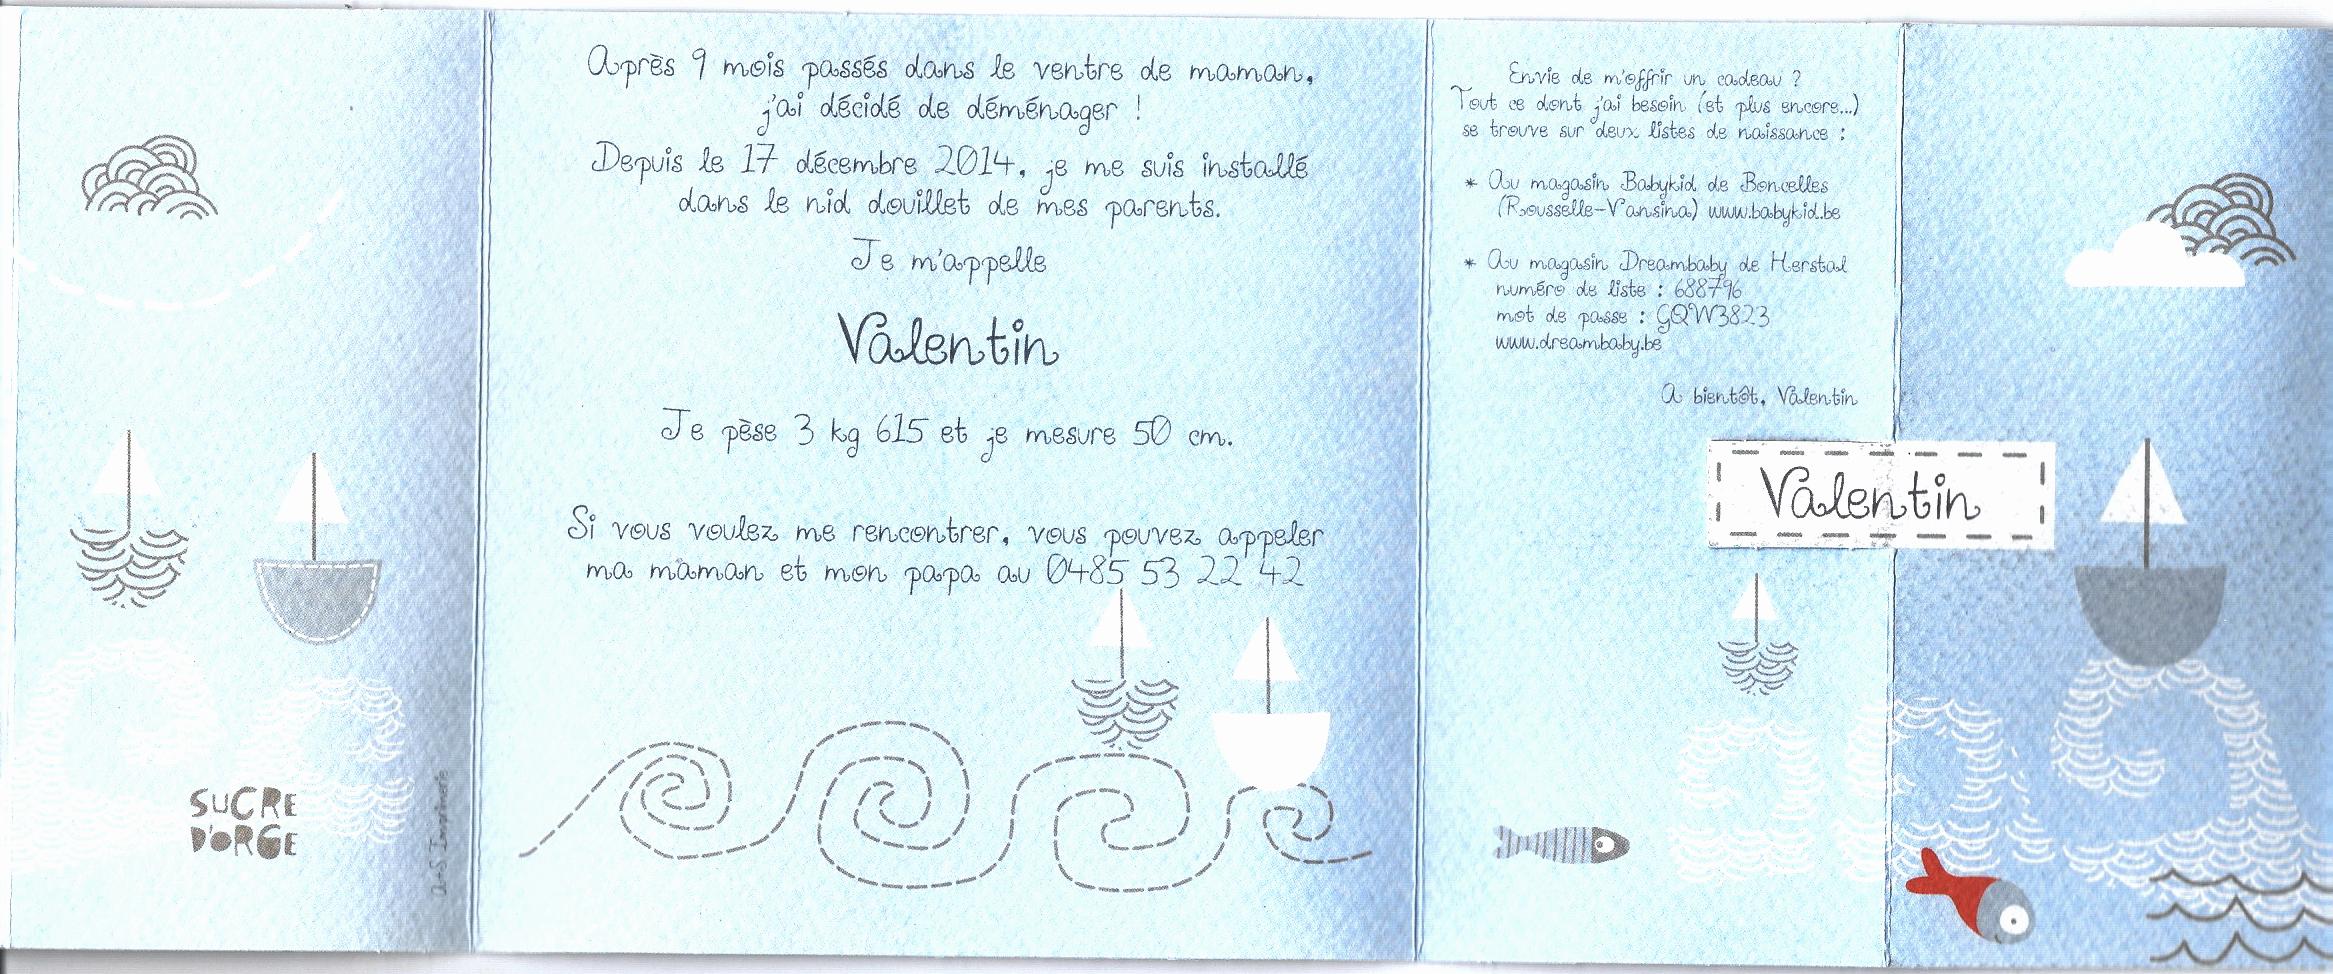 SUCRE
D'ORGE
Après 9 mois passés dans le ventre de maman,
j'ai décidé de déménager !
Depuis le 17 décembre 2014, je me suis installé
dans le nid douillet de mes parents.
Je m'appelle
Valentin
Je pèse 3 kg 615 et je mesure 50 cm.
Si vous voulez me rencontrer, vous pouvez appeler
ma maman et mon papa au 0485 53 22 42
Envie de m'offrir un cadeau ?
Tout ce dont j'ai besoin (et plus encore...)
se trouve sur deux listes de naissance :
* Au magasin Babykid de Boncelles
(Rousselle-Vansina) www.babykid.be
* Au magasin Dreambaby de Herstal
numéro de liste : 688796
mot de passe : GQW3823
www.dreambaby.be
A bientôt, Valentin
Valentin